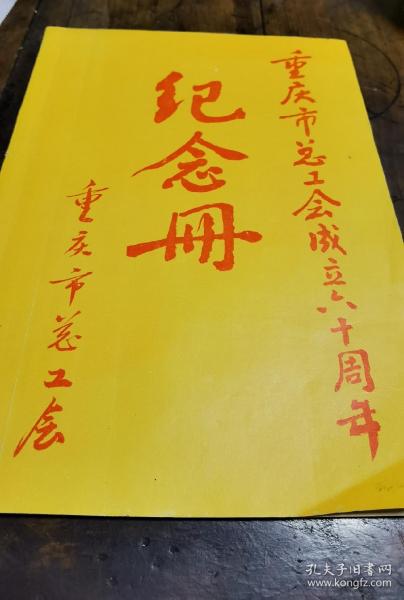 重庆市总工会成立六十周年
纪念册
重庆市总工会
孔夫子旧书网
www.kongfz.com